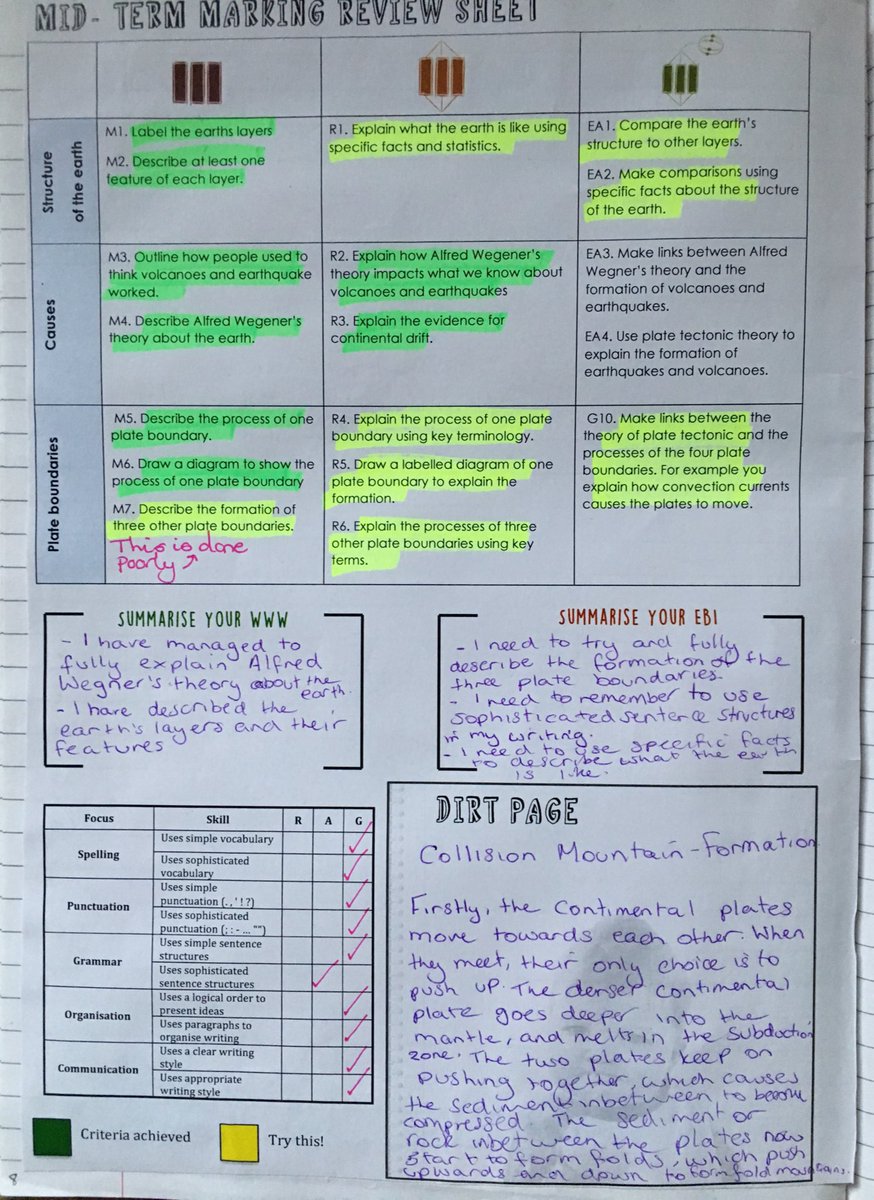 MID- TERM MARKING REVIEW SHEET
Structure
of the earth
M1. Label the earths layers
M2. Describe at least one
feature of each layer.
R1. Explain what the earth is like using
specific facts and statistics.
EA1. Compare the earth's
structure to other layers.
EA2. Make comparisons using
specific facts about the structure
of the earth.
Causes
M3. Outline how people used to
think volcanoes and earthquake
worked.
M4. Describe Alfred Wegener's
theory about the earth.
R2. Explain how Alfred Wegener's
theory impacts what we know about
volcanoes and earthquakes
R3. Explain the evidence for
continental drift.
EA3. Make links between Alfred
Wegner's theory and the
formation of volcanoes and
earthquakes.
EA4. Use plate tectonic theory to
explain the formation of
earthquakes and volcanoes.
Plate boundaries
M5. Describe the process of one
plate boundary.
M6. Draw a diagram to show the
process of one plate boundary
M7. Describe the formation of
three other plate boundaries.
This is done
poorly
R4. Explain the process of one plate
boundary using key terminology.
R5. Draw a labelled diagram of one
plate boundary to explain the
formation.
R6. Explain the processes of three
other plate boundaries using key
terms.
G10. Make links between the
theory of plate tectonic and the
processes of the four plate
boundaries. For example you
explain how convection currents
causes the plates to move.
SUMMARISE YOUR WWW
- I have managed to
fully explain Alfred
Wegner's theory about the
earth.
- I have described the
earth's layers and their
features
SUMMARISE YOUR EBI
- I need to try and fully
describe the formation of the
three plate boundaries.
- I need to remember to use
sophisticated sentence structures
in my writing.
- I need to use specific facts
to describe what the earth
is like.
Focus Skill R A G
Spelling
Uses simple vocabulary
Uses sophisticated
vocabulary
Punctuation
Uses simple
punctuation (. , ' ! ?)
Uses sophisticated
punctuation (; : - ... "")
Grammar
Uses simple sentence
structures
Uses sophisticated
sentence structures
Organisation
Uses a logical order to
present ideas
Uses paragraphs to
organise writing
Communication
Uses a clear writing
style
Uses appropriate
writing style
Criteria achieved
Try this!
DIRT PAGE
Collision Mountain-Formation
Firstly, the continental plates
move towards each other. When
they meet, their only choice is to
push up. The denser continental
plate goes deeper into the
mantle, and melts in the subduction
zone. The two plates keep on
pushing together, which causes
the sediment inbetween to become
compressed. The sediment or
rock inbetween the plates now
start to form folds, which push
upwards and down to form fold mountains.
8